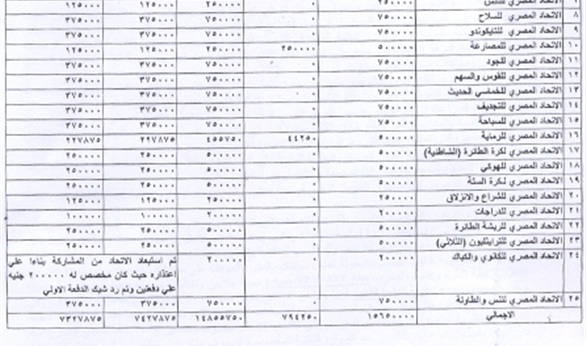 الاتحاد المصري ٢٥٠٠٠٠ ٠ ٢٥٠٠٠٠ ١٢٥٠٠٠ ١٢٥٠٠٠
٨ الاتحاد المصري للسلاح ٧٥٠٠٠٠ ٠ ٧٥٠٠٠٠ ٣٧٥٠٠٠ ٣٧٥٠٠٠
٩ الاتحاد المصري للتايكوندو ٧٥٠٠٠٠ ٠ ٧٥٠٠٠٠ ٣٧٥٠٠٠ ٣٧٥٠٠٠
١٠ الاتحاد المصري للمصارعة ٥٠٠٠٠٠ ٢٥٠٠٠٠ ٢٥٠٠٠٠ ١٢٥٠٠٠ ١٢٥٠٠٠
١١ الاتحاد المصري للجود ٧٥٠٠٠٠ ٠ ٧٥٠٠٠٠ ٣٧٥٠٠٠ ٣٧٥٠٠٠
١٢ الاتحاد المصري للقوس والسهم ٧٥٠٠٠٠ ٠ ٧٥٠٠٠٠ ٣٧٥٠٠٠ ٣٧٥٠٠٠
١٣ الاتحاد المصري للخماسي الحديث ٧٥٠٠٠٠ ٠ ٧٥٠٠٠٠ ٣٧٥٠٠٠ ٣٧٥٠٠٠
١٤ الاتحاد المصري للتجديف ٧٥٠٠٠٠ ٠ ٧٥٠٠٠٠ ٣٧٥٠٠٠ ٣٧٥٠٠٠
١٥ الاتحاد المصري للسباحة ٧٥٠٠٠٠ ٠ ٧٥٠٠٠٠ ٣٧٥٠٠٠ ٣٧٥٠٠٠
١٦ الاتحاد المصري للرماية ٥٠٠٠٠٠ ٤٤٢٥٠ ٤٥٥٧٥٠ ٢٢٧٨٧٥ ٢٢٧٨٧٥
١٧ الاتحاد المصري لكرة الطائرة (الشاطئية) ٥٠٠٠٠٠ ٠ ٥٠٠٠٠٠ ٢٥٠٠٠٠ ٢٥٠٠٠٠
١٨ الاتحاد المصري للهوكي ٥٠٠٠٠٠ ٠ ٥٠٠٠٠٠ ٢٥٠٠٠٠ ٢٥٠٠٠٠
١٩ الاتحاد المصري لكرة السلة ٥٠٠٠٠٠ ٠ ٥٠٠٠٠٠ ٢٥٠٠٠٠ ٢٥٠٠٠٠
٢٠ الاتحاد المصري للشراع والانزلاق ٢٥٠٠٠٠ ٠ ٢٥٠٠٠٠ ١٢٥٠٠٠ ١٢٥٠٠٠
٢١ الاتحاد المصري للدراجات ٢٠٠٠٠٠ ٠ ٢٠٠٠٠٠ ١٠٠٠٠٠ ١٠٠٠٠٠
٢٢ الاتحاد المصري للريشة الطائرة ٥٠٠٠٠٠ ٠ ٥٠٠٠٠٠ ٢٥٠٠٠٠ ٢٥٠٠٠٠
٢٣ الاتحاد المصري للترايثليون (الثلاثي) ٥٠٠٠٠٠ ٠ ٥٠٠٠٠٠ ٢٥٠٠٠٠ ٢٥٠٠٠٠
٢٤ الاتحاد المصري للكانوي والكياك ٢٠٠٠٠٠ ٠ ٢٠٠٠٠٠ تم استبعاد الاتحاد من المشاركة بناءا علي
اعتذاره حيث كان مخصص له ٢٠٠٠٠٠ جنيه
علي دفعتين وتم رد شيك الدفعة الاولي
٢٥ الاتحاد المصري لتنس والطاولة ٧٥٠٠٠٠ ٠ ٧٥٠٠٠٠ ٣٧٥٠٠٠ ٣٧٥٠٠٠
الاجمالي ١٥٦٥٠٠٠٠ ٧٩٤٢٥٠ ١٤٨٥٥٧٥٠ ٧٤٢٧٨٧٥ ٧٣٢٧٨٧٥